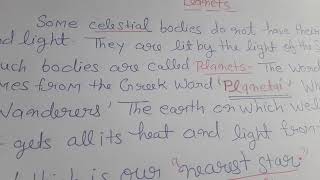 Planets
Some celestial bodies do not have their
nd light. They are lit by the light of the S
uch bodies are called Planets- The word
mes from the Greek Word 'Planetai' Wh
Wanderers' The earth on which we l
gets all its heat and light from
is our "nearest star."